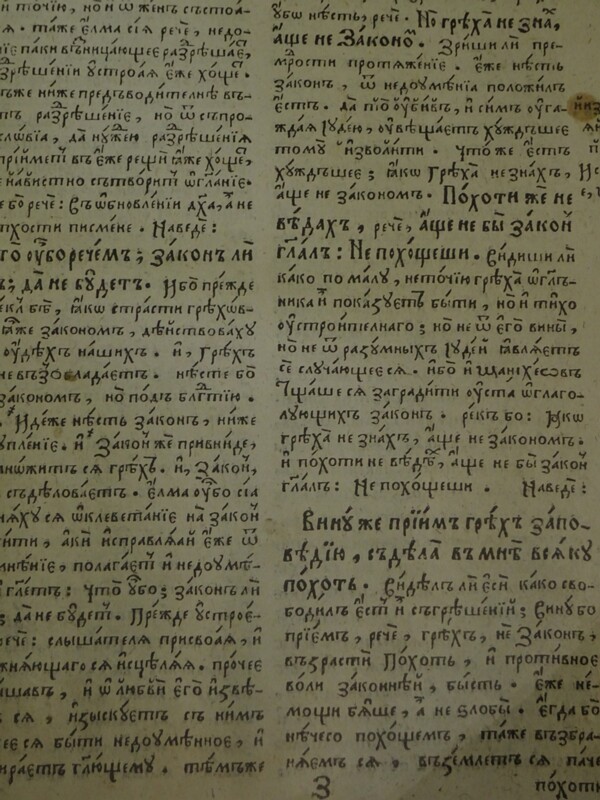 и точїю, но и ѿ женъ състоа-
ѧ. таже елма сїѧ рече, недо-
паки въвинцающее разрѣшає,
разрѣшенїи устроаѧ еже хоще.
же ниже предъводителнѣ въ-
разрѣшенїе, но ѿ съпро-
словѧ, да нужею разрѣшенїѧ
прїимет въ еже рещи ꙗже хоще,
навистно сътворит ѡгланїе.
бо рече: Въ обновленїи дха, а не
тхости писмене. Наведе:
го убо речемъ; законъ ли
ъ; да не будетъ. Ибо прежде
екл бѣ, ꙗкѡ страсти грѣховъ-
ꙗже закономъ, дѣйствоваху
удѣхъ нашихъ. и, грѣхъ
не възобладаетъ. нѣсте бо
закономъ, но подъ блгтїю.
Идеже нѣсть законъ, ниже
упленїе. и Закон же привниде,
множитъ сѧ грѣхъ. и, Закон,
съдѣловаетъ. елма убо сїа
нѧху сѧ ѡклеветанїе на закон
ити, аки исправлѧѧ еже ѿ
мнѣнїе, полагает и недоумѣ-
глетъ: Что убо; законъ ли
; да не будет. Прежде устрое-
рече: слышателѧ присвоаѧ, и
жнѧющаго сѧ исцелѧѧ. прочее
ишавъ, и ѿ любви его извѣ-
сѧ, изыскуетъ съ нимъ
еесѧ быти недоумѣнное, и
ираетъ глющему. тѣмъже
убѡ нѣсть, рече. Но грѣха не зна,
аще не Законо. Зриши ли пре-
мрости протѧженїе. еже нѣсть
законъ, ѿ недоумѣнїа положилъ
естъ. да по убивъ, и симъ уга-
ждаѧ Iудею, увѣщаетъ хуждьшее
тому изволити. Что же естъ
хуждъшее; ꙗкѡ грѣха не знахъ,
аще не закономъ. Похоти же не
вѣдахъ, рече, аще не бы закон
глалъ: Не похощеши. Видиши ли
како по малу, не точїю грѣха ѡглъ-
ника и показуетъ быти, но и тихо
устроителнаго; но не ѿ его вины,
но не ѿ разумныхъ Iудеи ꙗвлѧетъ
се случающеесѧ. ибо и Манихеовъ
тщаше сѧ заградити уста ѡглаго-
лующихъ законъ. рекъ бо: Ꙗкѡ
грѣха не знахъ, аще не закономъ.
и похоти не вѣдѣ, аще не бы закон
глалъ: Не похощеши. Наведе:
Вину же прїимъ грѣхъ запо-
вѣдїю, съдѣла въ мнѣ всѧку
похоть. Видѣлъ ли еси како сво-
бодилъ ест и съгрѣшенїй; Вину бо
прїемъ, рече, грѣхъ, не Законъ,
възрасти Похоть, и противное
воли законнѣй, бысть. еже не-
мощи бѧше, а не злобы. егда бо
нѣчесо похощемъ, таже възбра-
нѧемъ сѧ, въземлетъ сѧ паче
З
похоти